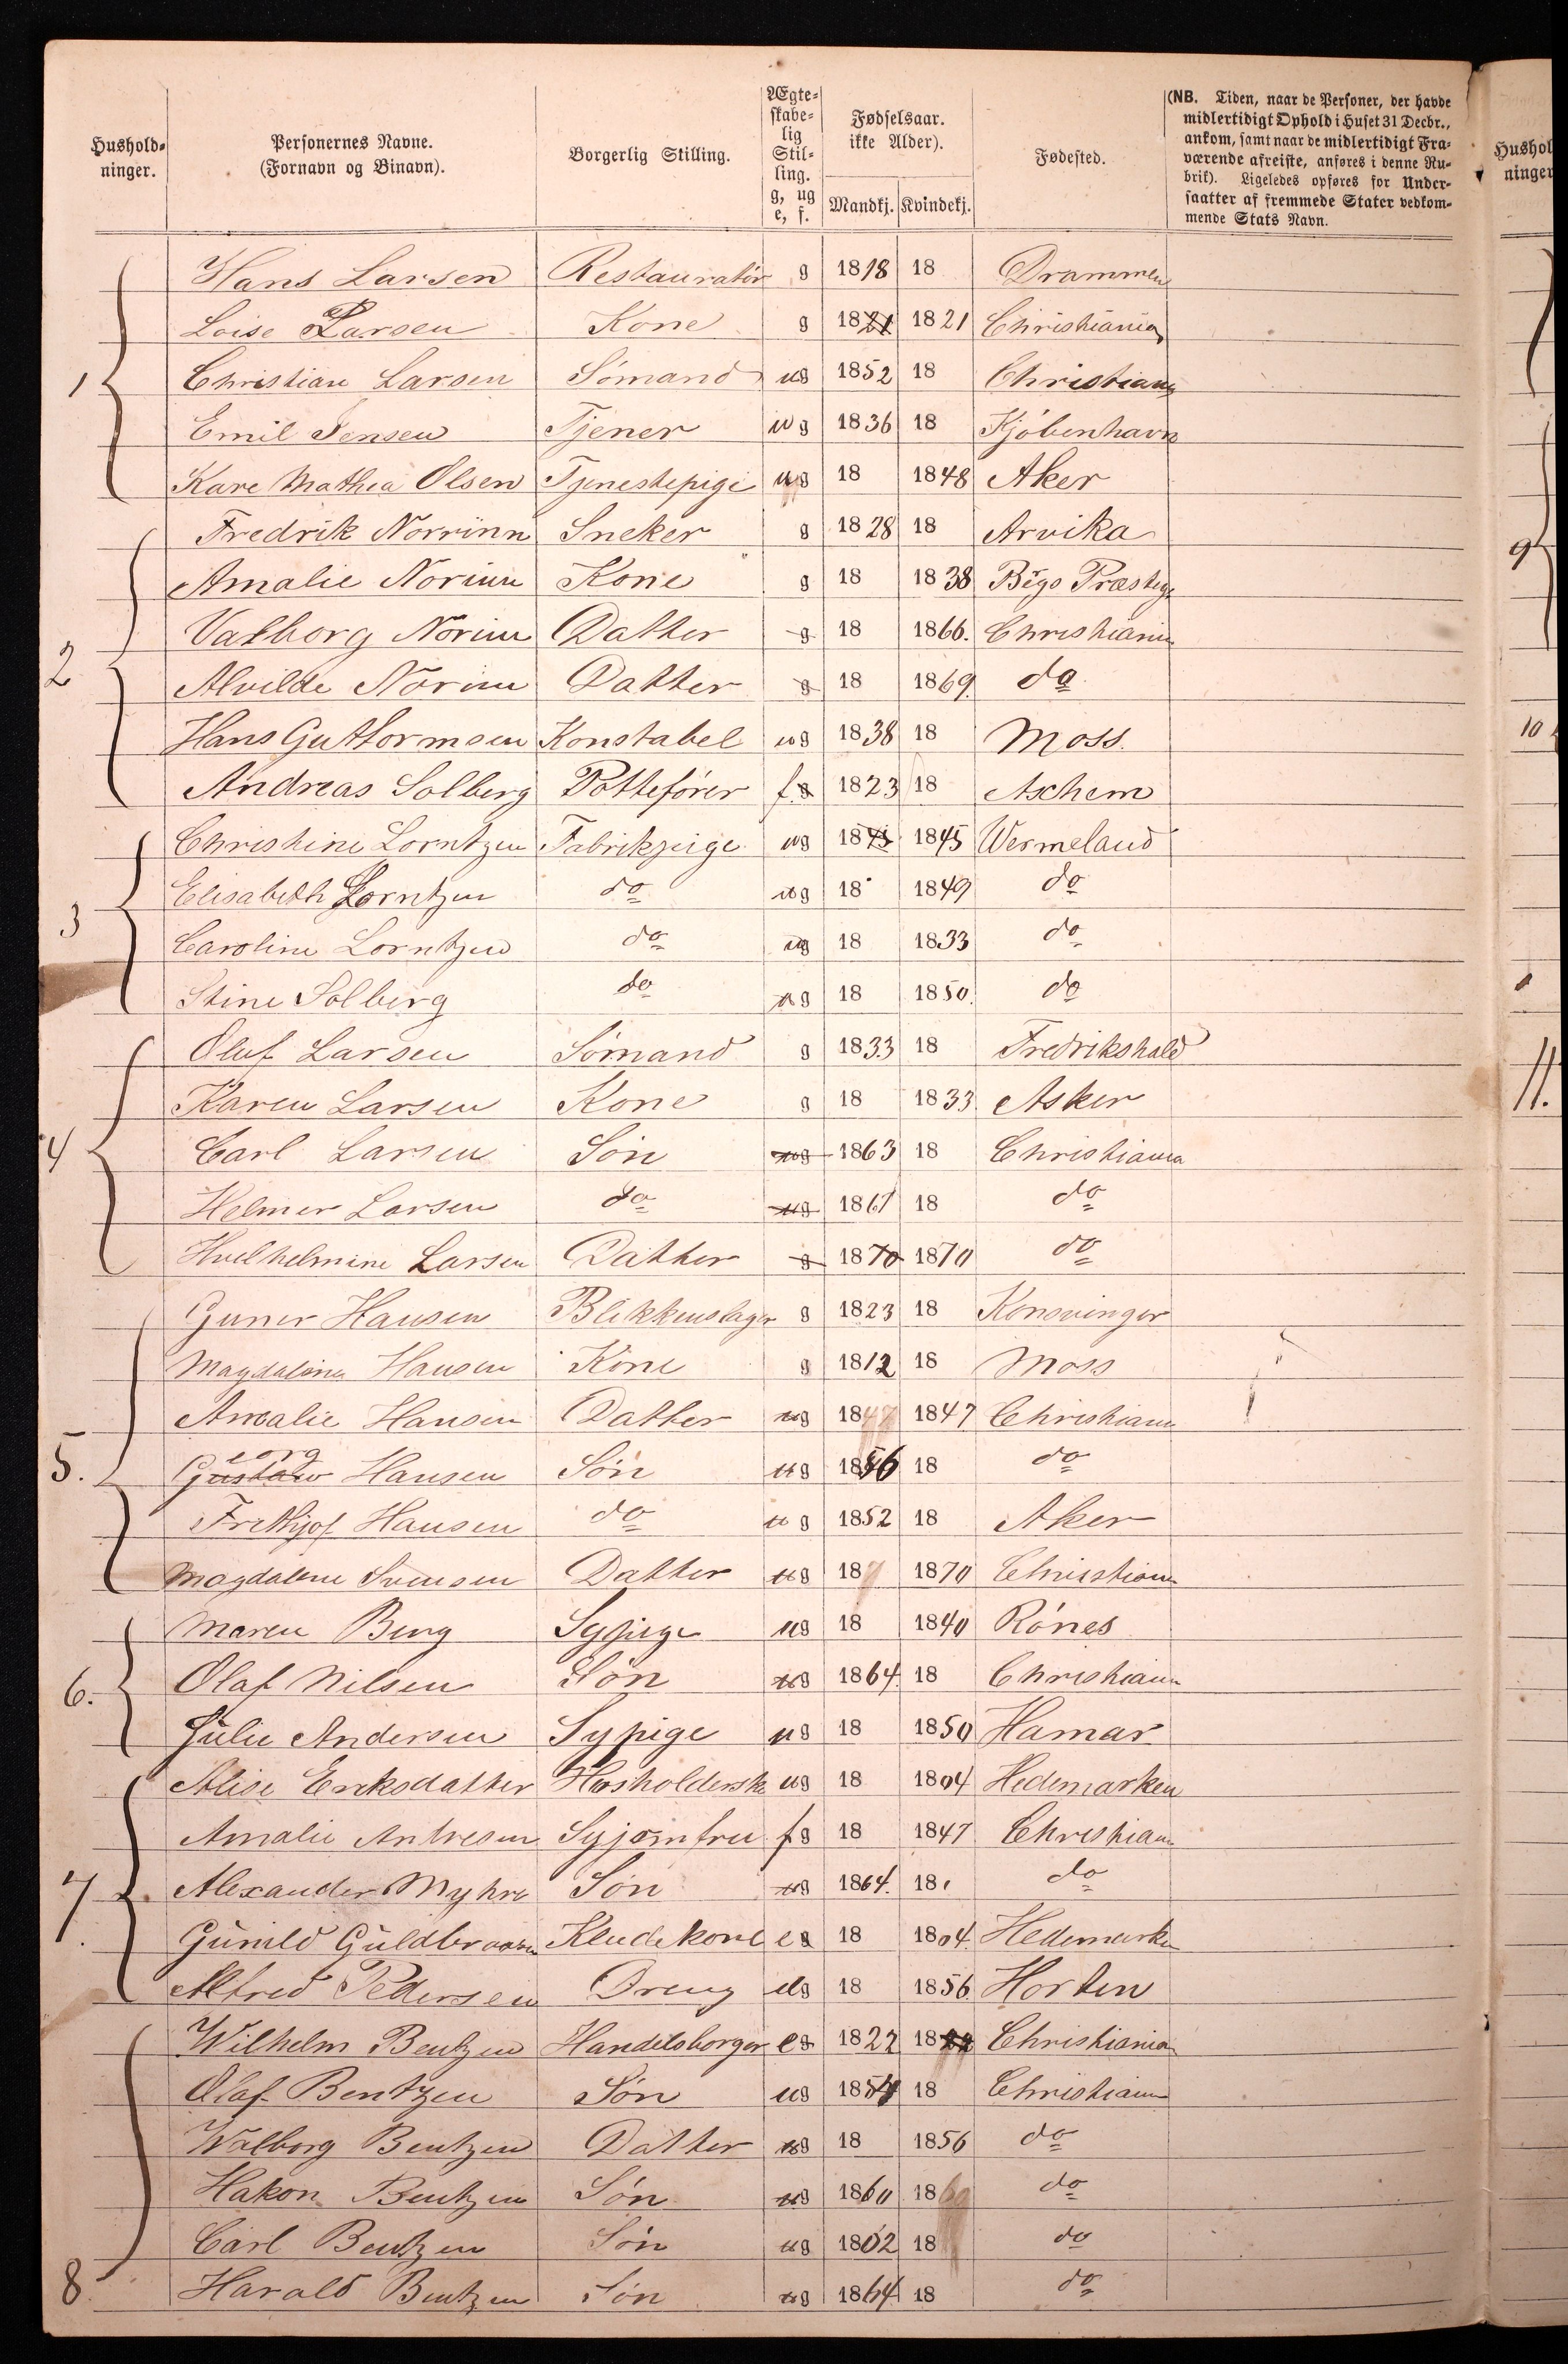 Hushold-
ninger.
Personernes Navne.
(Fornavn og Binavn).
Borgerlig Stilling.
Ægte-
skabe-
lig
Stil-
ling.
g, ug
e, f.
Fødselsaar.
ikke Alder).
Mandkj. Kvindekj.
Fødested.
(NB. Tiden, naar de Personer, der havde
midlertidigt Ophold i Huset 31 Decbr.,
ankom, samt naar de midlertidigt Fra-
værende afreiste, anføres i denne Ru-
brik). Ligeledes opføres for Under-
saatter af fremmede Stater vedkom-
mende Stats Navn.
Hushol
ninger
Hans Larsen Restauratör g 1818 18 Drammen
Loise Larsen Kone g 1821 1821 Christiania
1 Christian Larsen Sömand ug 1852 18 Christiania
Emil Jensen Tjener ug 1836 18 Kjöbenhavn
Kare Mathea Olsen Tjenestepige ug 18 1848 Aker
Fredrik Norrinn Sneker g 1828 18 Arvika
Amalie Norinn Kone g 18 1838 Præsteg
Valborg Norinn Datter g 18 1866. Christiania
2 Alvilde Norinn Datter g 18 1869. do
Hans Guttormsen Konstabel ug 1838 18 Moss.
Andreas Solberg Potteförer f g 1823 18 Aschem
Christine Lorntzen Fabrikpige ug 1845 1845 Wermeland
3 Elisabeth Lorntzen do ug 18 1849 do
Caroline Lorntzen do ug 18 1833 do
Stine Solberg do ug 18 1850. do
Oluf Larsen Sömand g 1833 18 Fredrikshald
Karen Larsen Kone g 18 1833 Asker
4 Carl Larsen Sön ug 1863 18 Christiania
Helmer Larsen do ug 1867 18 do
Hvelhelmine Larsen Datter g 1870 1870 do
Guner Hansen Blekkenslager g 1823 18 Konsvinger
Magdalena Hansen Kone g 1812 18 Moss
Amalie Hansen Datter ug 1847 1847 Christiania
5. Gustaw eorg Hansen Sön ug 1856 18 do
Frithjof Hansen do ug 1852 18 Aker
Magdalene Svensen Datter ug 187 1870 Christiania
Maren Berg Sypige ug 18 1840 Rónes
6. Olaf Nilsen Sön ug 1864. 18 Christiania
Julie Andersen Sypige ug 18 1850 Hamar
Alise Eriksdatter Husholderske ug 18 1804 Hedemarken
Amalie Andresen Syjomfru f g 18 1847 Christiania
7. Alexander Myhre Sön ug 1864. 18 do
Gunild Guldbransen Kludekone e g 18 1804. Hedemarken
Alfred Pedersen Dreng ug 18 1856. Horten
Wilhelm Bentzen Handelsborger e g 1822 1822 Christiania
Olaf Bentzen Sön ug 1854 18 Christiania
Walborg Bentzen Datter ug 18 1856 do
Hakon Bentzen Sön ug 1860 1860 do
Carl Bentzen Sön ug 1862 18 do
8 Harald Bentzen Sön ug 1864 18 do
9
10
11.